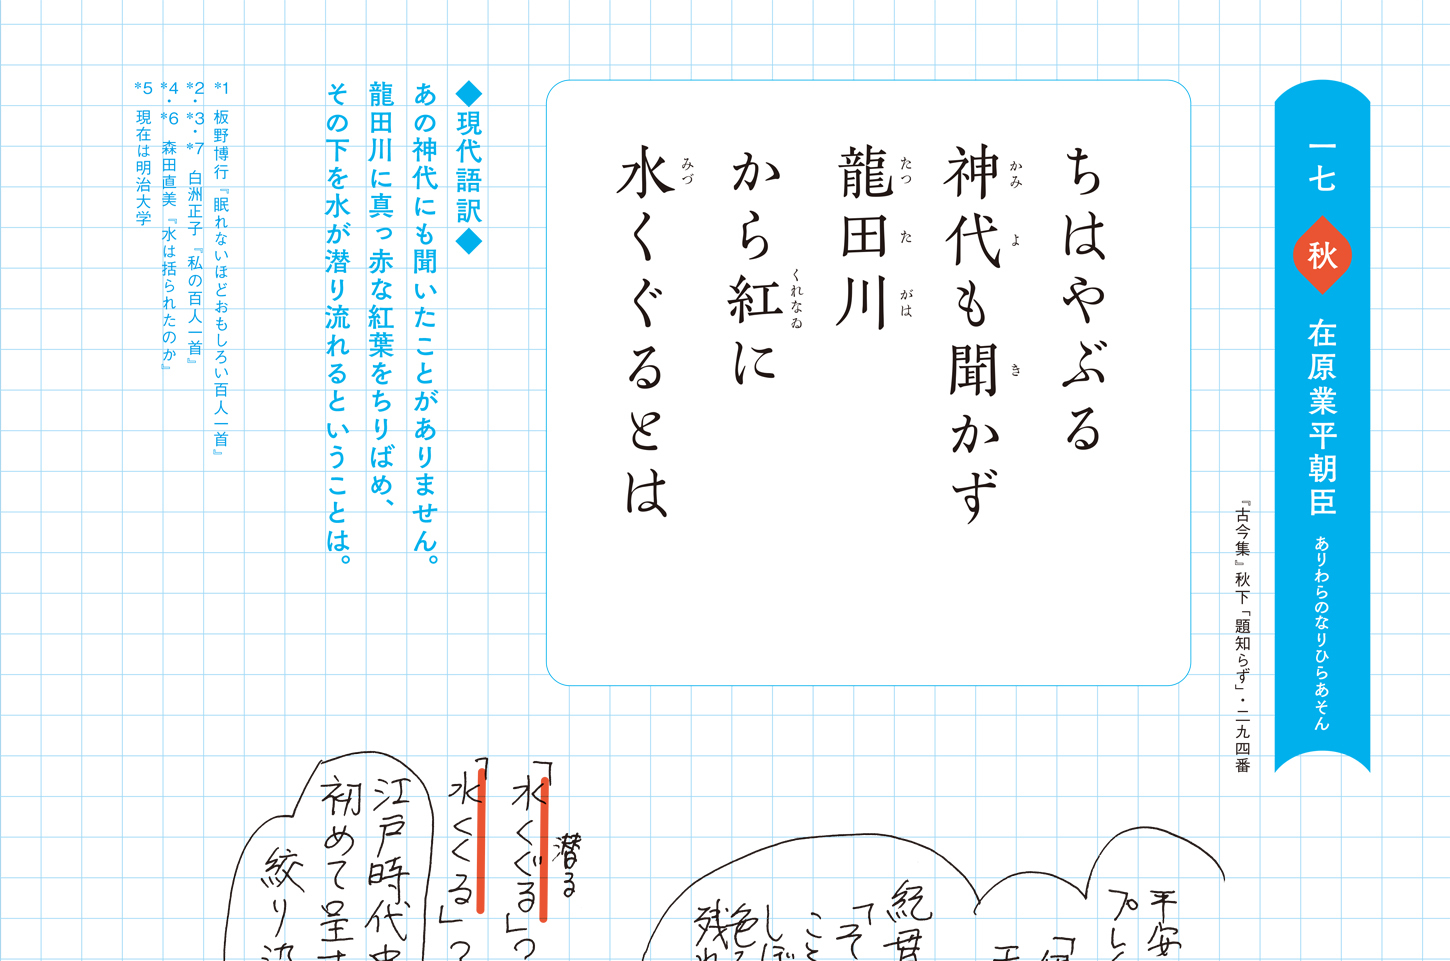 一七 秋 在原業平朝臣 ありわらのなりひらあそん
『古今集』秋下「題知らず」・二九四番
ちはやぶる
神代も聞かず
かみ よ き
龍田川
たつ た がは
から紅に
くれなゐ
水くぐるとは
みづ
◆現代語訳◆
あの神代にも聞いたことがありません。
龍田川に真っ赤な紅葉をちりばめ、
その下を水が潜り流れるということは。
*1 板野博行『眠れないほどおもしろい百人一首』
*2・*3・*7 白洲正子『私の百人一首』
*4・*6 森田直美『水は括られたのか』
*5 現在は明治大学
平安
プレ
紀貫
「そ
こと
しぼ
色
残れ
潜る
「水くぐる」?
「水くくる」?
江戸時代
初めて呈
絞り